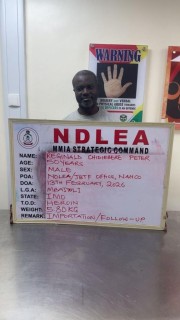 WARNING
NDLEA
MMIA STRATEGIC COMMAND
NAME: REGINALD CHIDIEBERE PETER
AGE: 50 YEARS
SEX: MALE
POA: NDLEA/JBTF OFFICE, NAHCO
DOA: 13TH FEBRUARY, 2026
L.G.A: MBAITOLI
STATE: IMO
T.O.D: HEROIN
WEIGHT: 5.80KG
REMARK: IMPORTATION/FOLLOW-UP